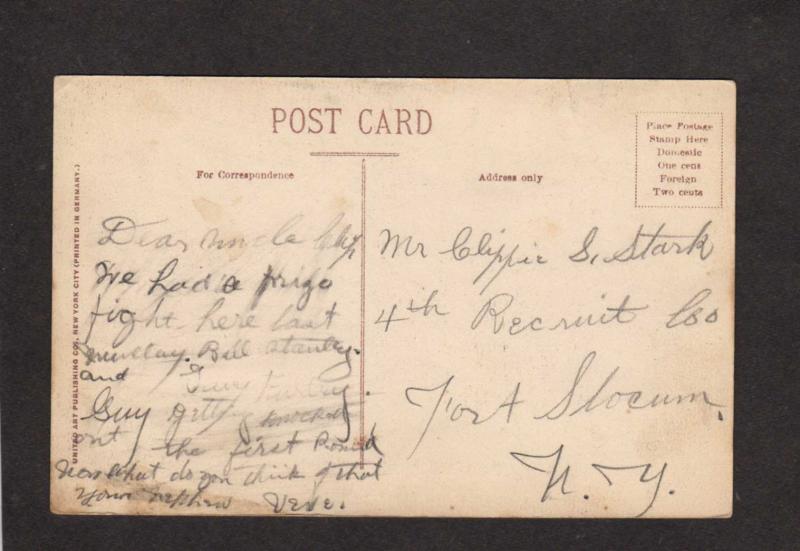 POST CARD
For Correspondence
Address only
Place Postage
Stamp Here
Domestic
One cent
Foreign
Two cents
UNITED ART PUBLISHING CO., NEW YORK CITY (PRINTED IN GERMANY.)
Dear uncle Clip
We had a prize
fight here last
Bill Stanley
and
Guy knocked
out the first Round
Now what do you think of that
Your Nephew Vere.
Mr Clippie S. Stark
4th Recruit Co
Fort Slocum,
N. Y.